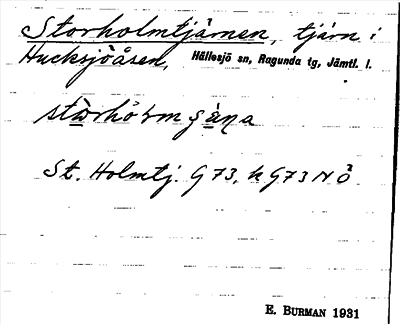 Storholmtjärnen, tjärn i
Hucksjöåsen, Hällesjö sn, Ragunda tg, Jämtl. l.
St. Holmtj. G 73, k G73 N Ö
E. BURMAN 1931